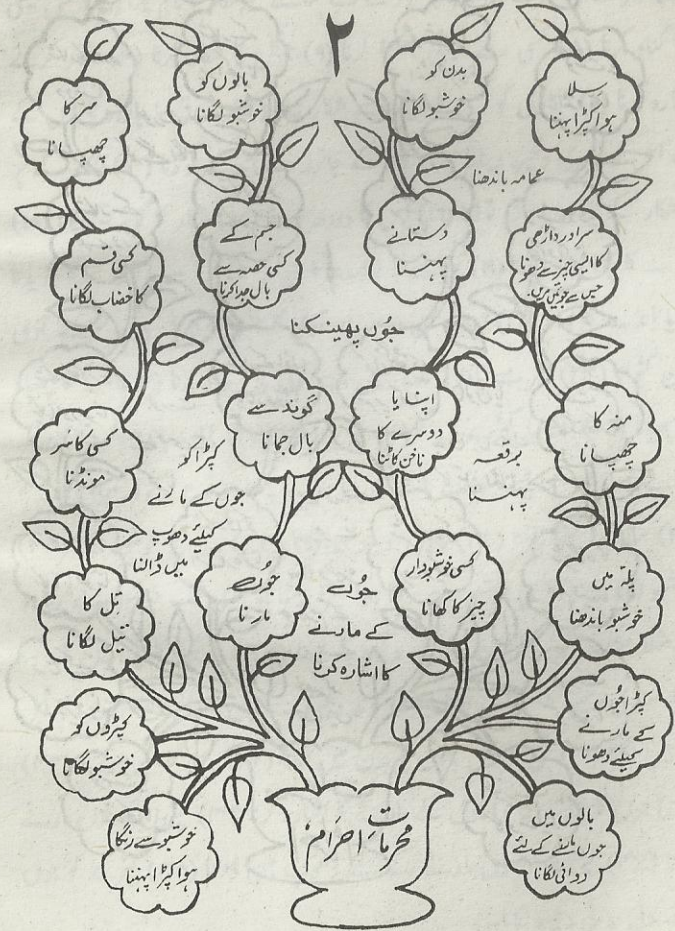 ۲
سلا
ہوا کپڑا پہننا
بدن کو
خوشبو لگانا
بالوں کو
خوشبو لگانا
سر کا
چھپانا
عمامہ باندھنا
سر اور داڑھی
کا ایسی چیز سے دھونا
جس سے جوئیں مریں.
دستانے
پہننا
جسم کے
کسی حصہ سے
بال جدا کرنا
کسی قسم
کا خضاب لگانا
جُوں پھینکنا
منہ کا
چھپانا
برقعہ
پہننا
اپنا یا
دوسرے کا
ناخن کاٹنا
گوند سے
بال جمانا
کپڑا کو
جوں کے مارنے
کیلئے دھوپ
میں ڈالنا
کسی کا سر
مونڈنا
پلہ میں
خوشبو باندھنا
کسی خوشبودار
چیز کا کھانا
جُوں
کے مارنے
کا اشارہ کرنا
جُوں
مارنا
تِل کا
تیل لگانا
کپڑا جُوں
کے مارنے
کیلئے دھونا
کپڑوں کو
خوشبو لگانا
بالوں میں
جوں مارنے کے لئے
دوائی لگانا
خوشبو سے رنگا
ہوا کپڑا پہننا
محرماتِ احرام